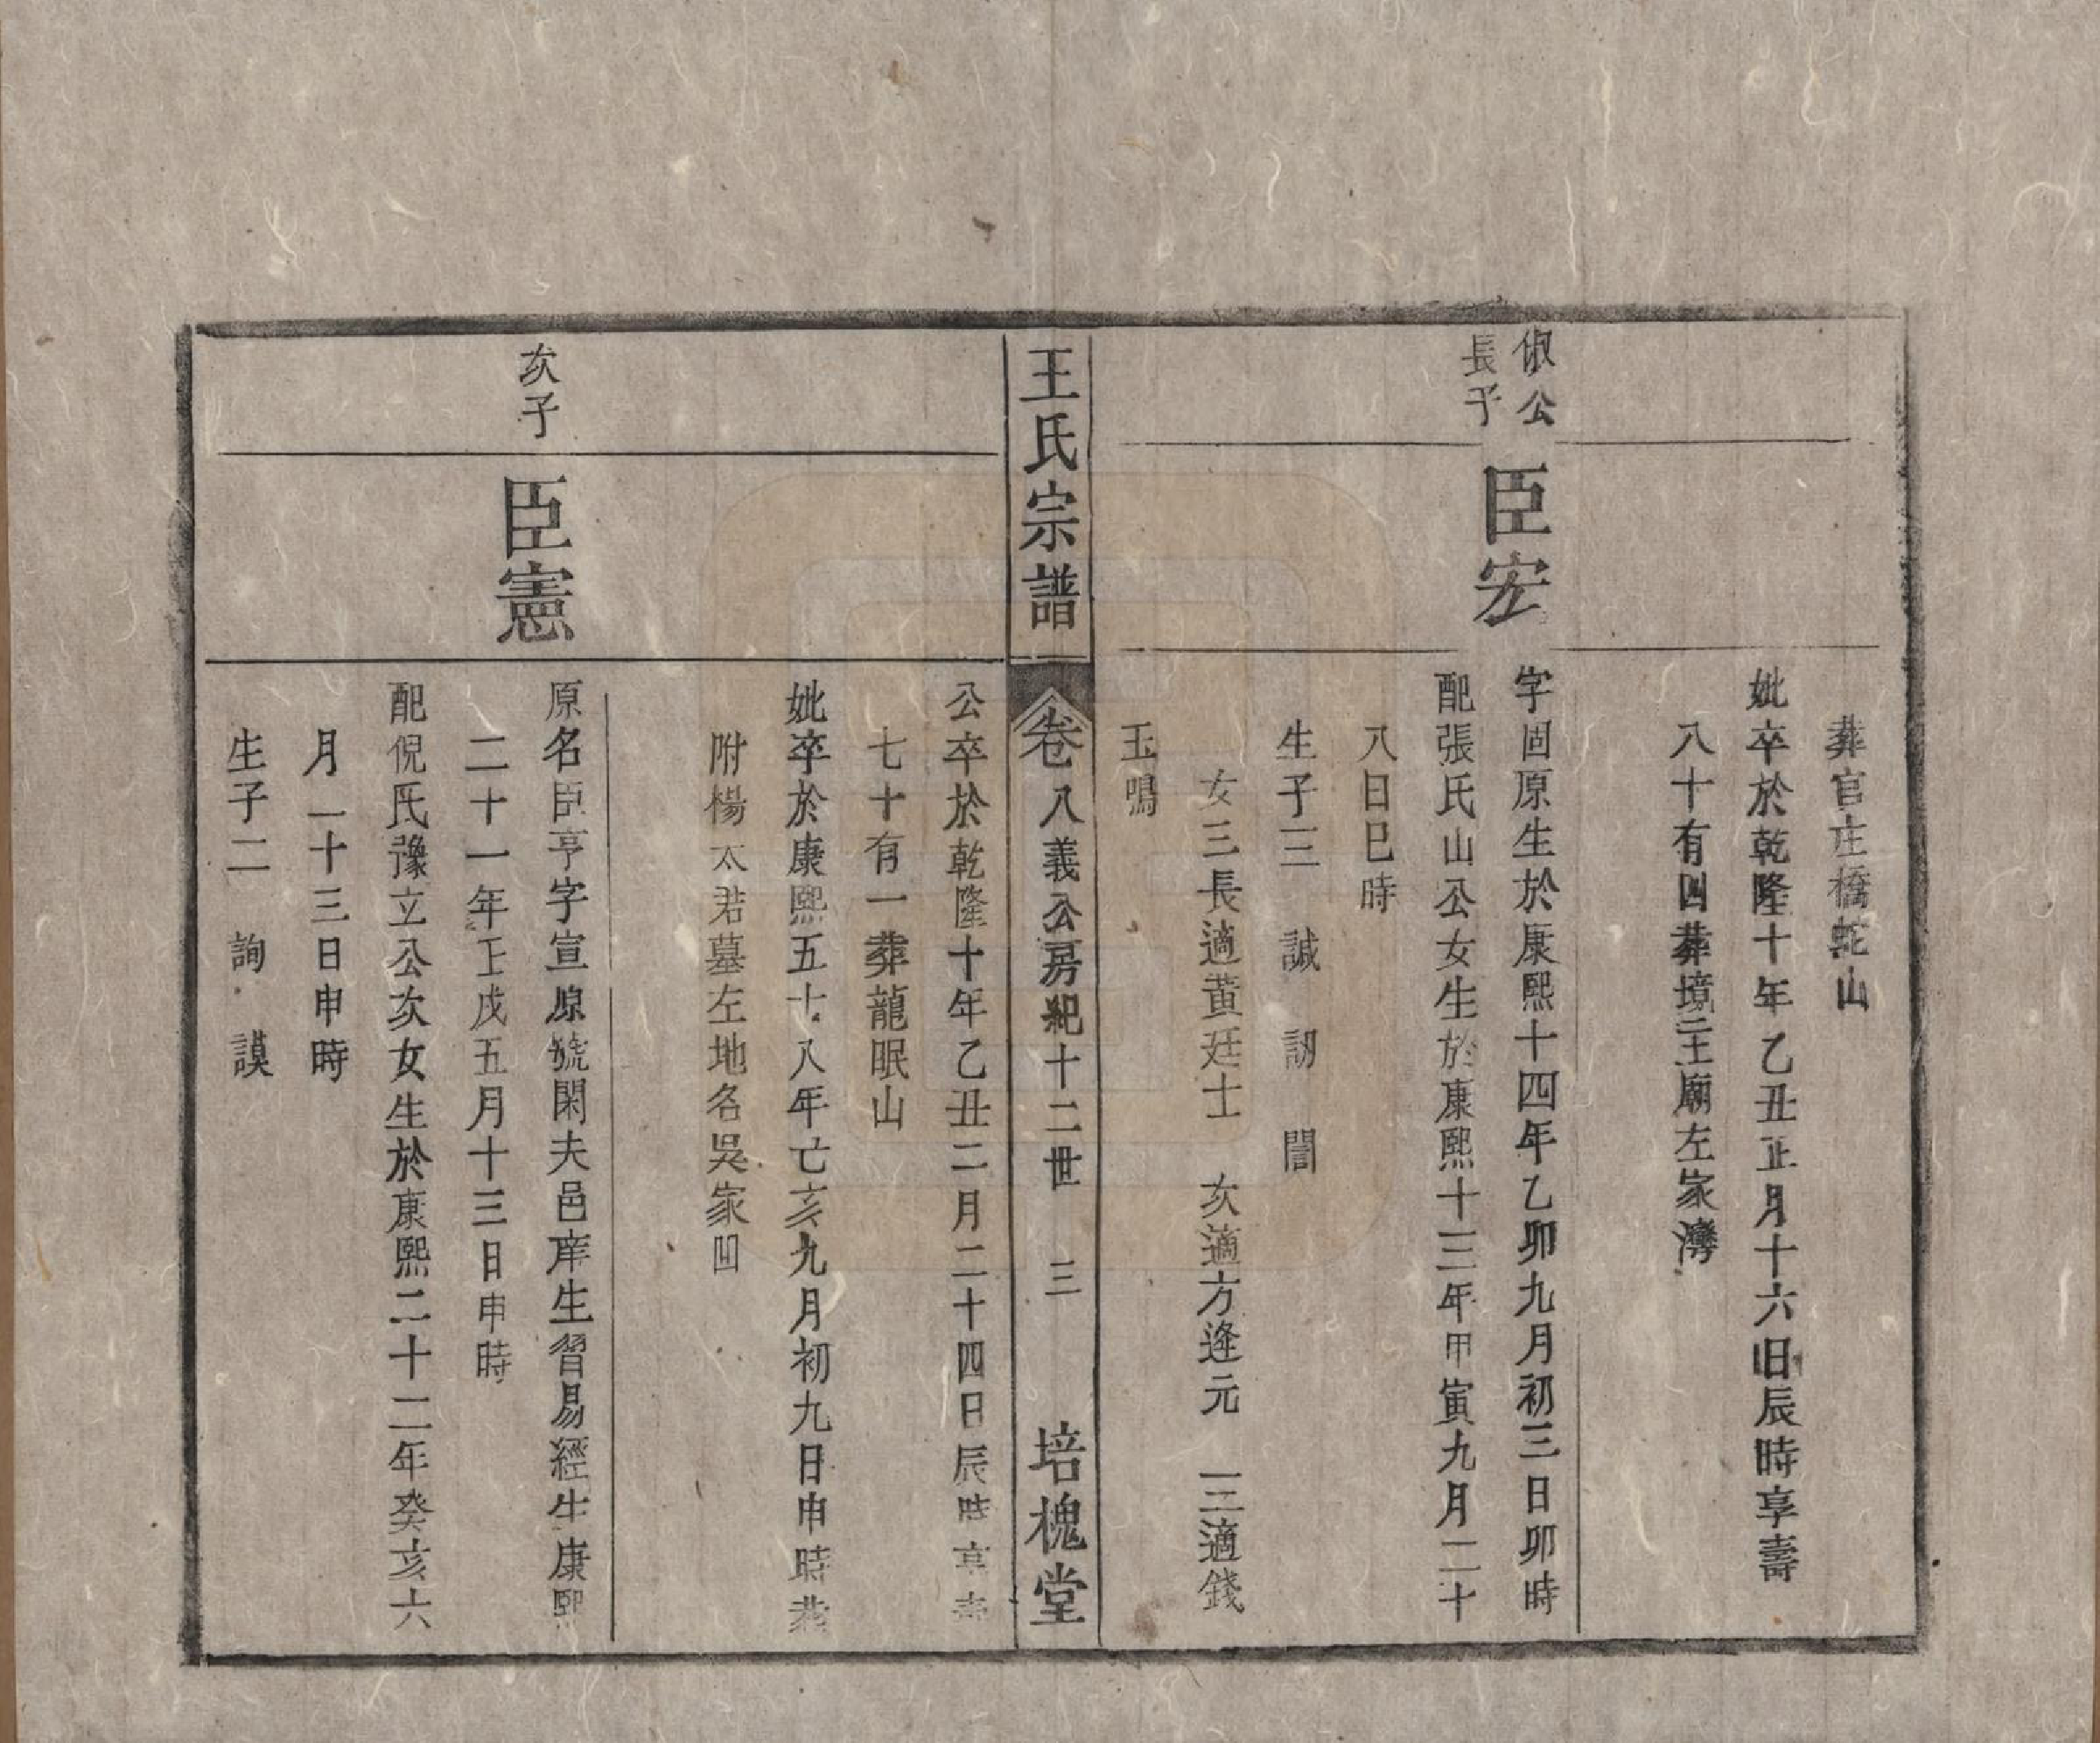 葬官庄橋蛇山
妣卒於乾隆十年乙丑正月十六日辰時享壽
八十有四葬境主廟左家灣
俶公
長子
臣宏
字固原生於康熙十四年乙卯九月初三日卯時
配張氏山公女生於康熙十三年甲寅九月二十
八日巳時
生子三 誠 訒 誾
女三長適黃廷士 次適方逢元 三適錢
玉鳴
王氏宗譜 卷八義公房紀十二世 三 培槐堂
公卒於乾隆十年乙丑二月二十四日辰時享壽
七十有一葬龍眠山
妣卒於康熙五十八年亡亥九月初九日申時葬
附楊太君墓左地名吳家凹
次子
臣憲
原名臣亨字宣原號閑夫邑庠生習易經生康熙
二十一年壬戌五月十三日申時
配倪氏豫立公次女生於康熙二十二年癸亥六
月二十三日申時
生子二 詢 謨